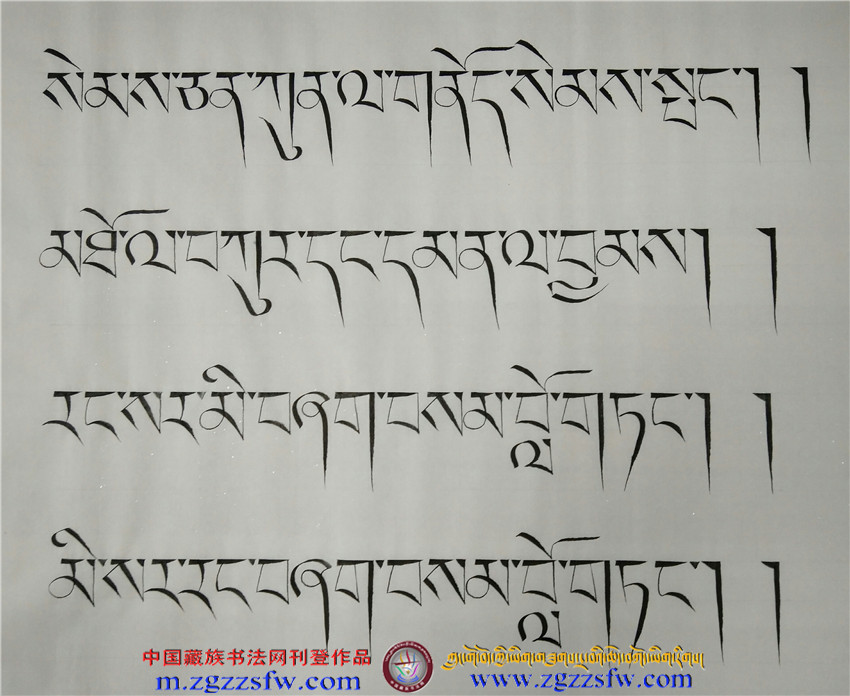 སེམས་ཅན་ཀུན་ལ་གནོད་སེམས་སྤང་། །
མཐོ་ལ་བཀུར་དང་དམན་ལ་བྱམས། །
རང་སར་མི་བཞག་བསམ་བློ་གཏང་། །
མི་སར་རང་བཞག་བསམ་བློ་གཏང་། །
中国藏族书法网刊登作品
m.zgzzsfw.com www.zgzzsfw.com